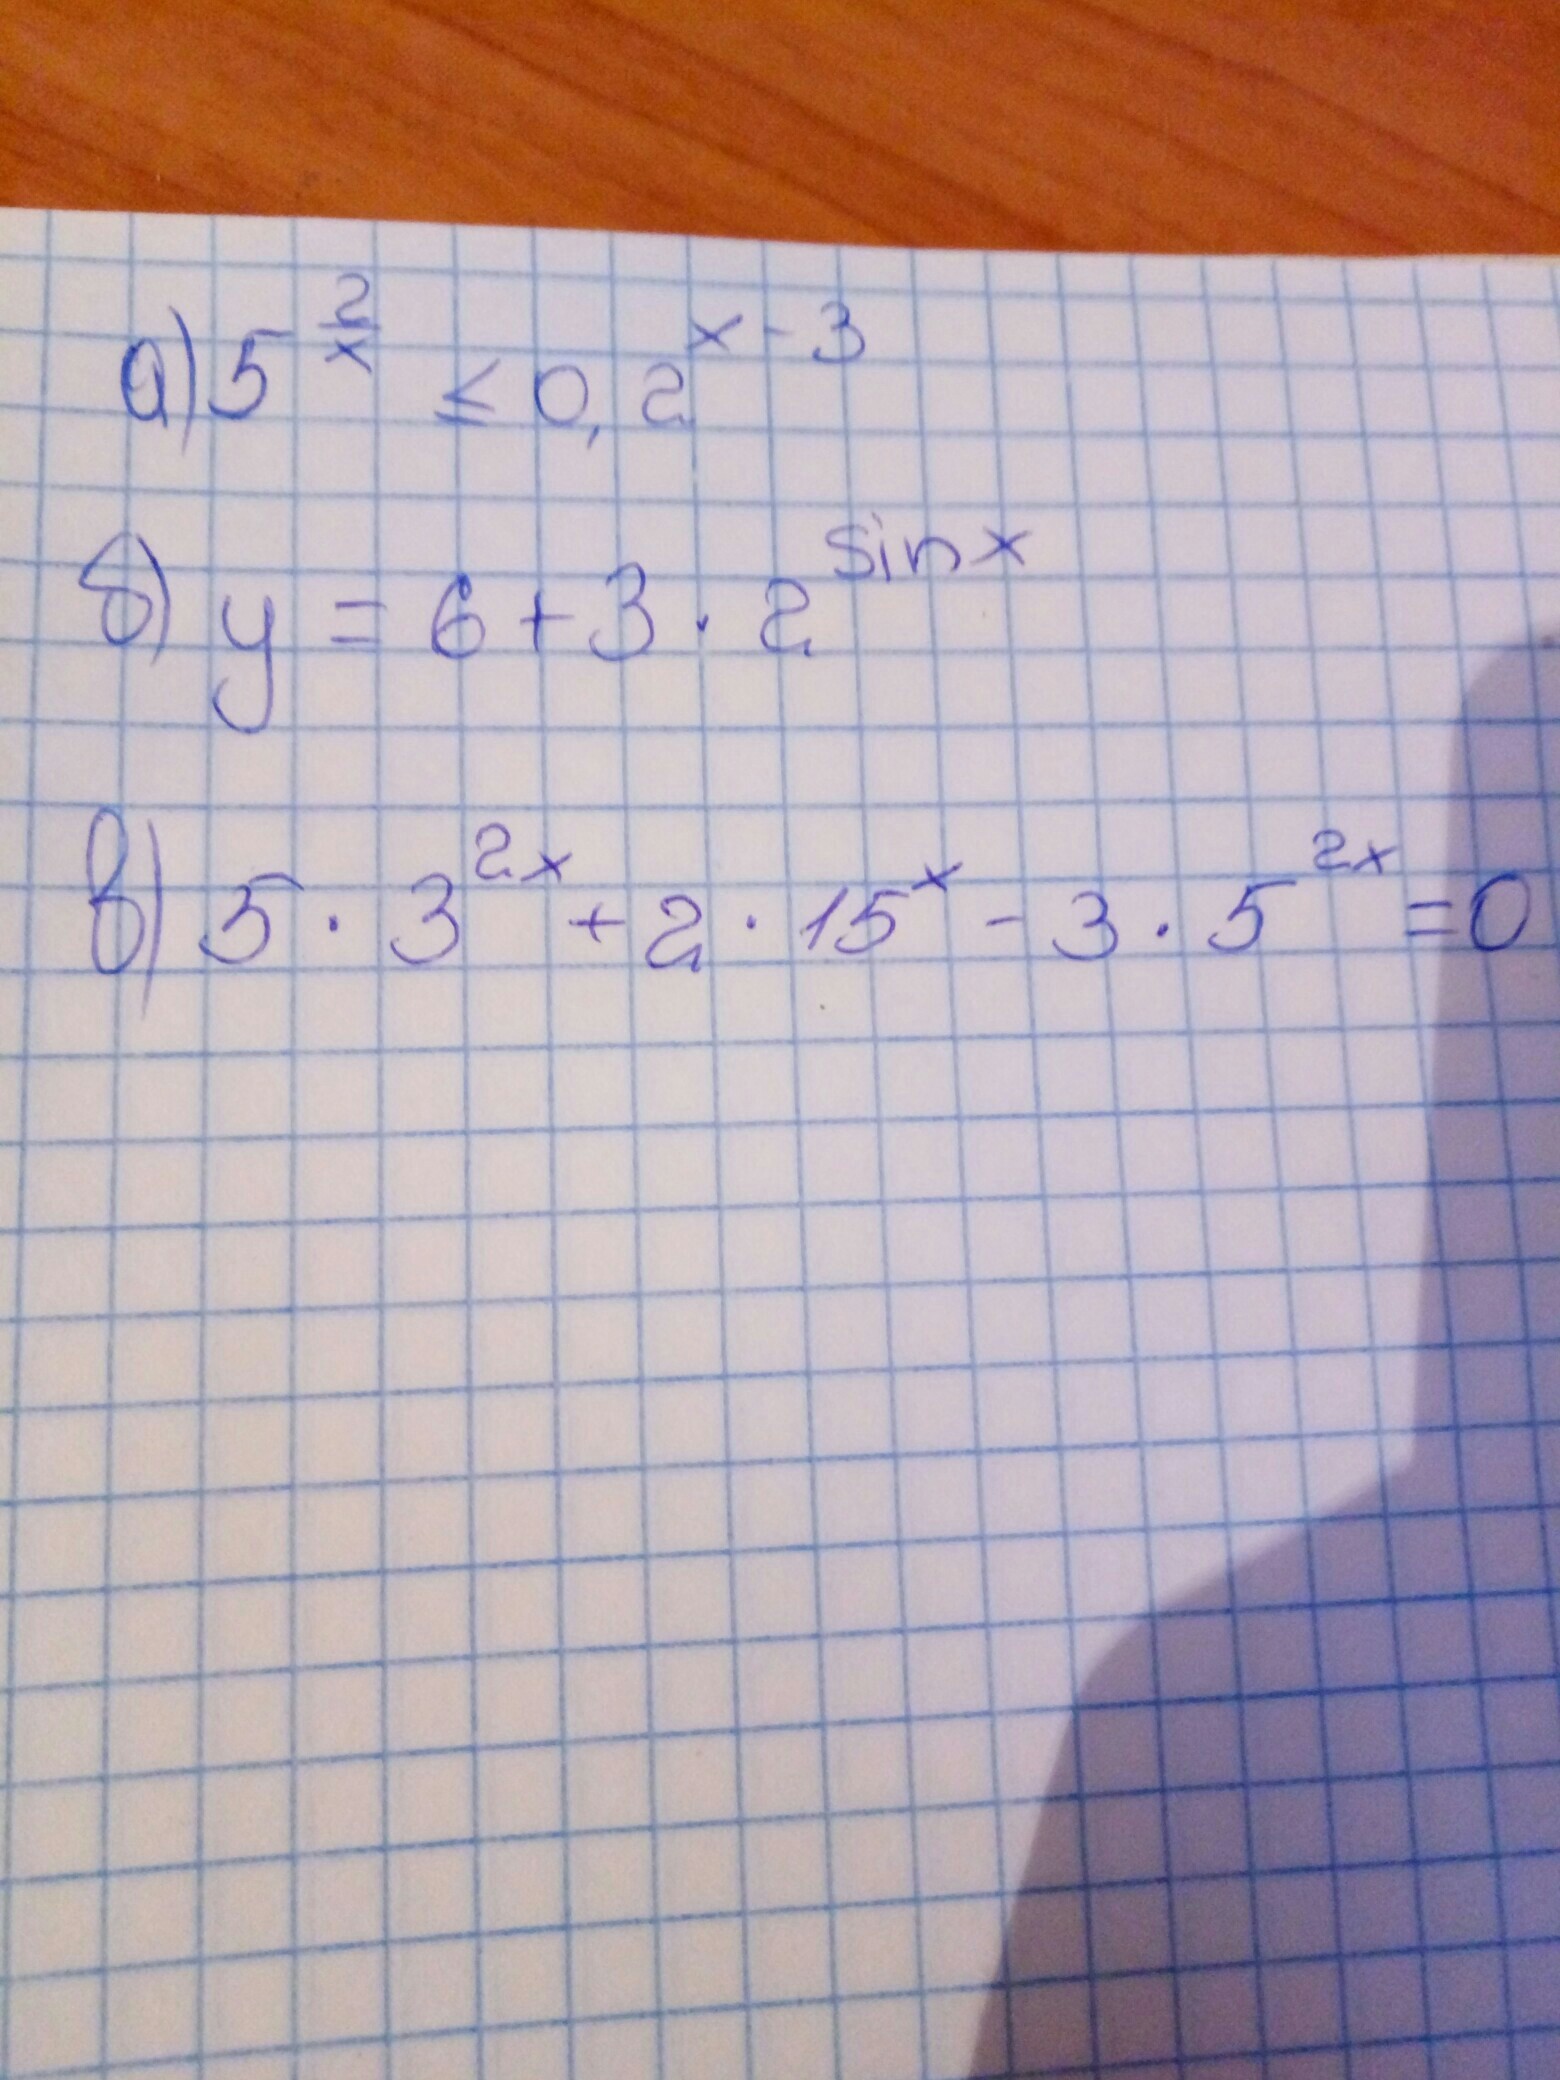 а) 5^{\frac{2}{x}} ≤ 0,2^{x-3}
б) y = 6 + 3 · 2^{sin x}
в) 5 · 3^{2x} + 2 · 15^{x} - 3 · 5^{2x} = 0